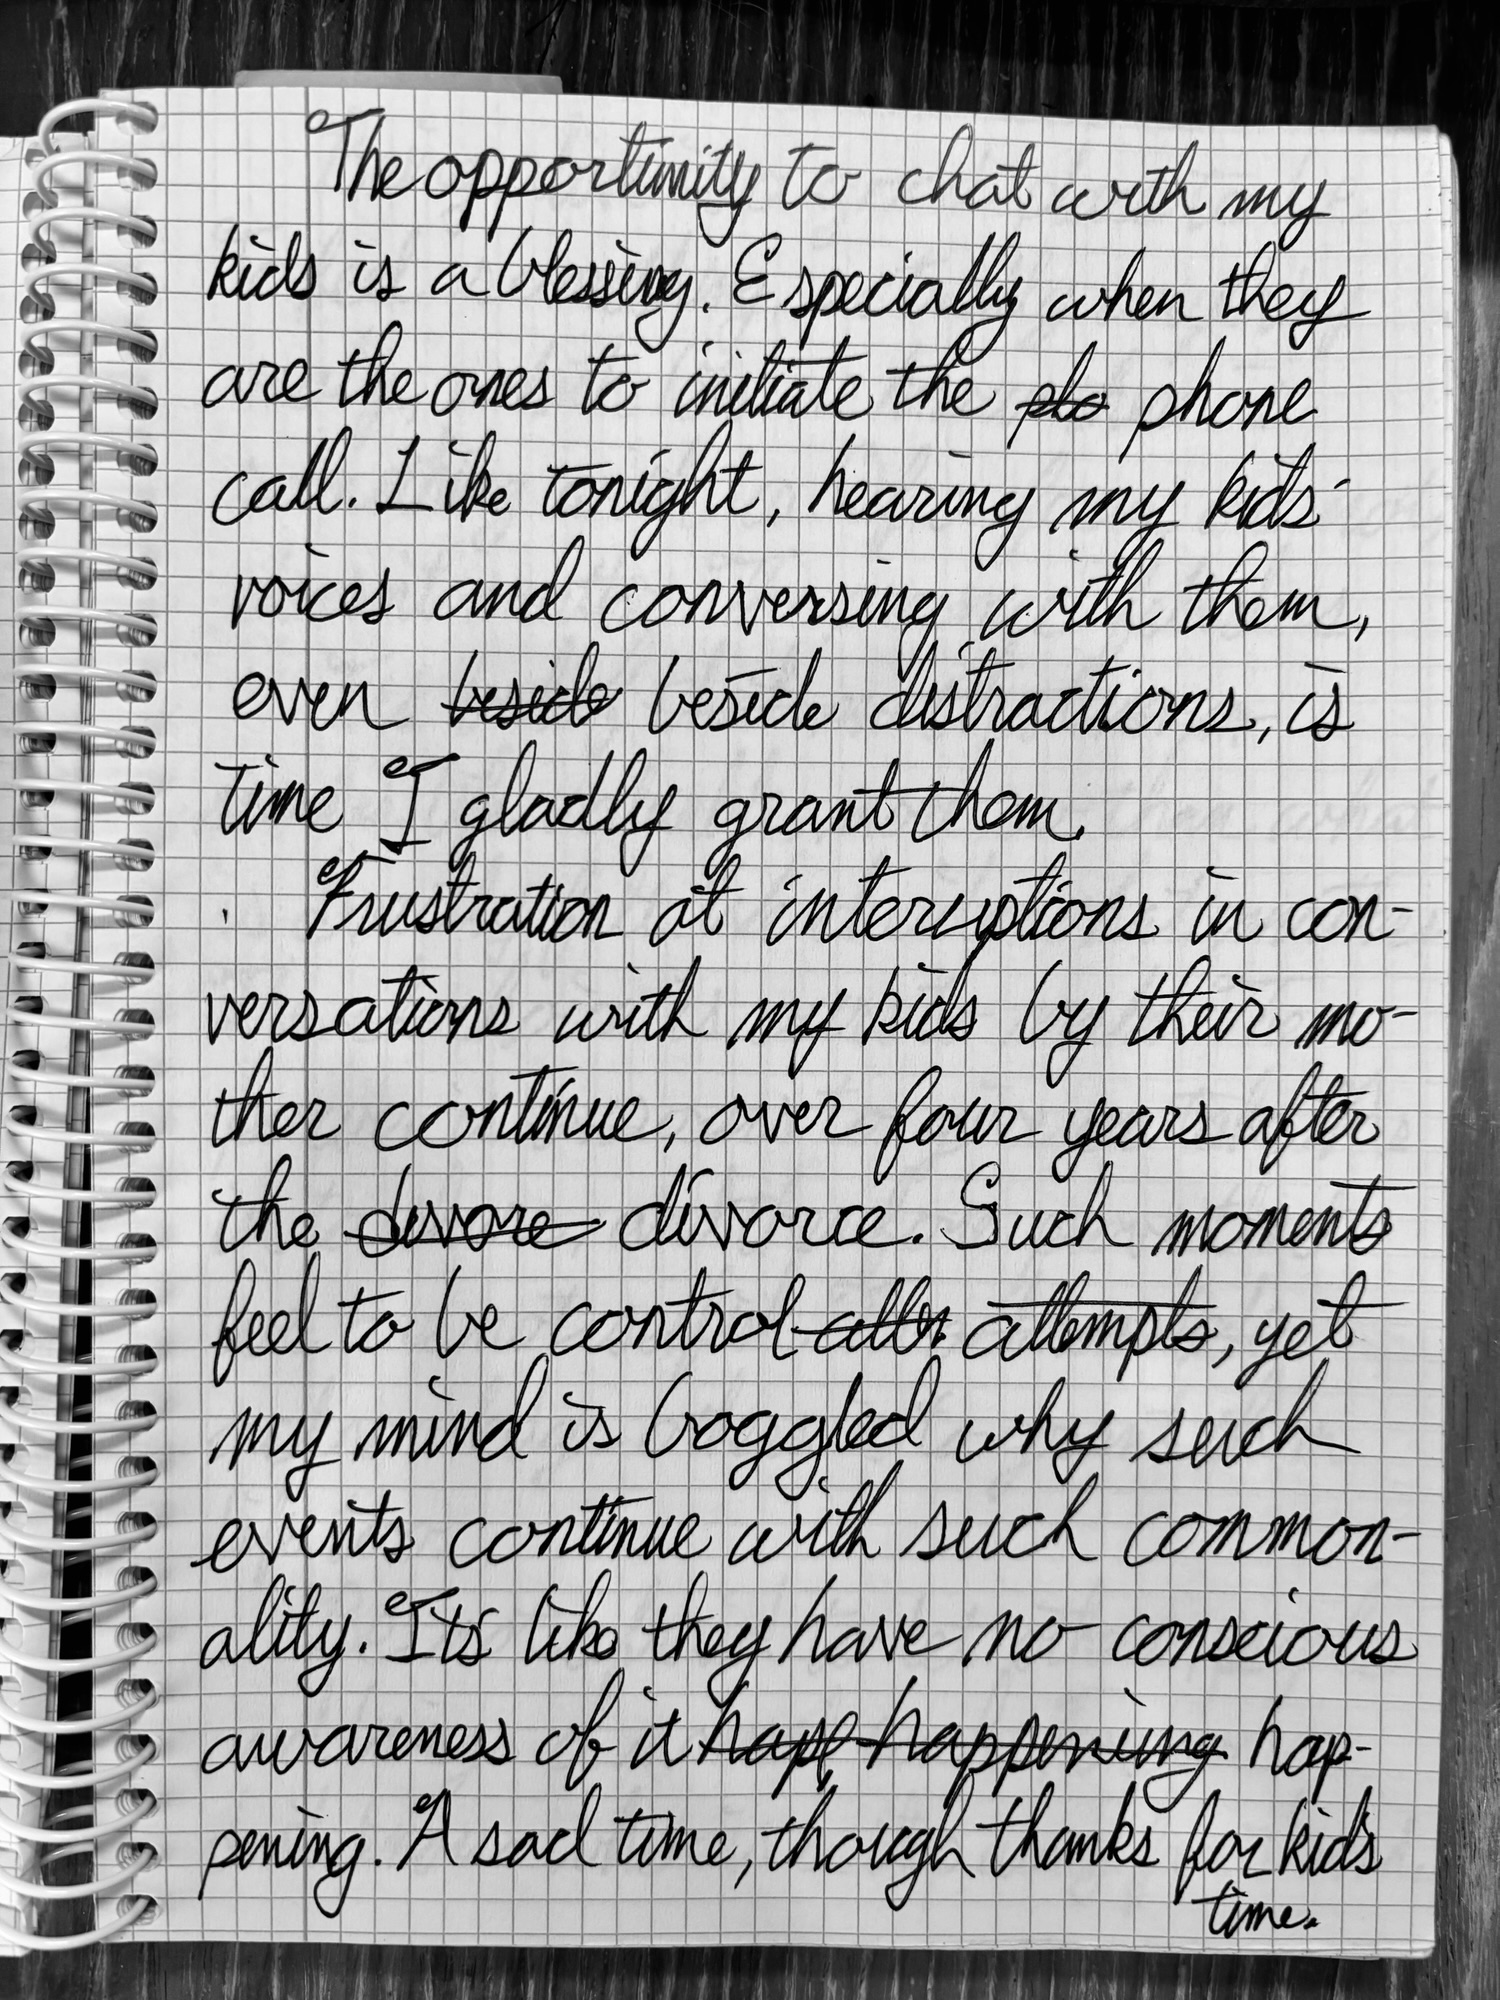 The opportunity to chat with my
kids is a blessing. Especially when they
are the ones to initiate the plo phone
call. Like tonight, hearing my kids'
voices and conversing with them,
even beside beside distractions, is
time I gladly grant them.
Frustration at interuptions in con-
versations with my kids by their mo-
ther continue, over four years after
the divore divorce. Such moments
feel to be control attempts, yet
my mind is boggled why such
events continue with such common-
ality. It's like they have no conscious
awareness of it happ happening hap-
pening. A sad time, though thanks for kid's
time.